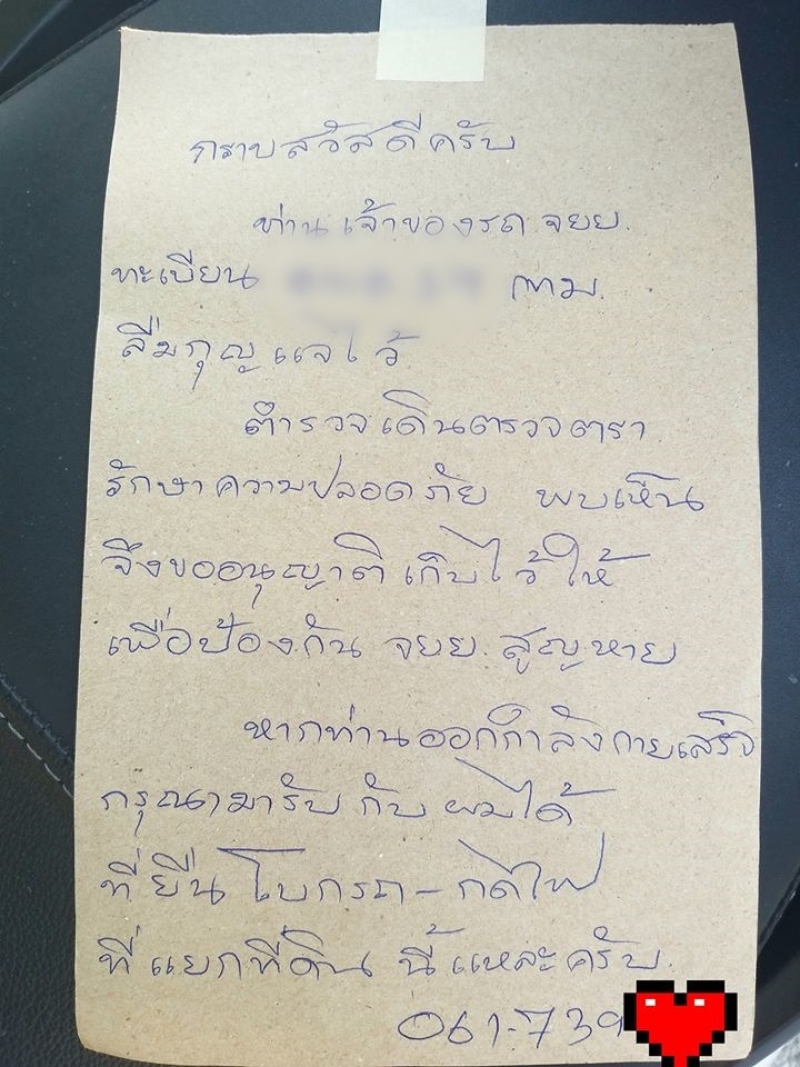 กราบสวัสดีครับ
ท่านเจ้าของรถ จยย.
ทะเบียน กทม.
ลืมกุญแจไว้
ตำรวจเดินตรวจตรา
รักษาความปลอดภัย พบเห็น
จึงขออนุญาติ เก็บไว้ให้
เพื่อป้องกัน จยย. สูญหาย
หากท่านออกกำลังกายเสร็จ
กรุณามารับ กับ ผมได้
ที่ยืน โบกรถ - กดไฟ
ที่แยกที่ดิน นี้แหละครับ.
061-739